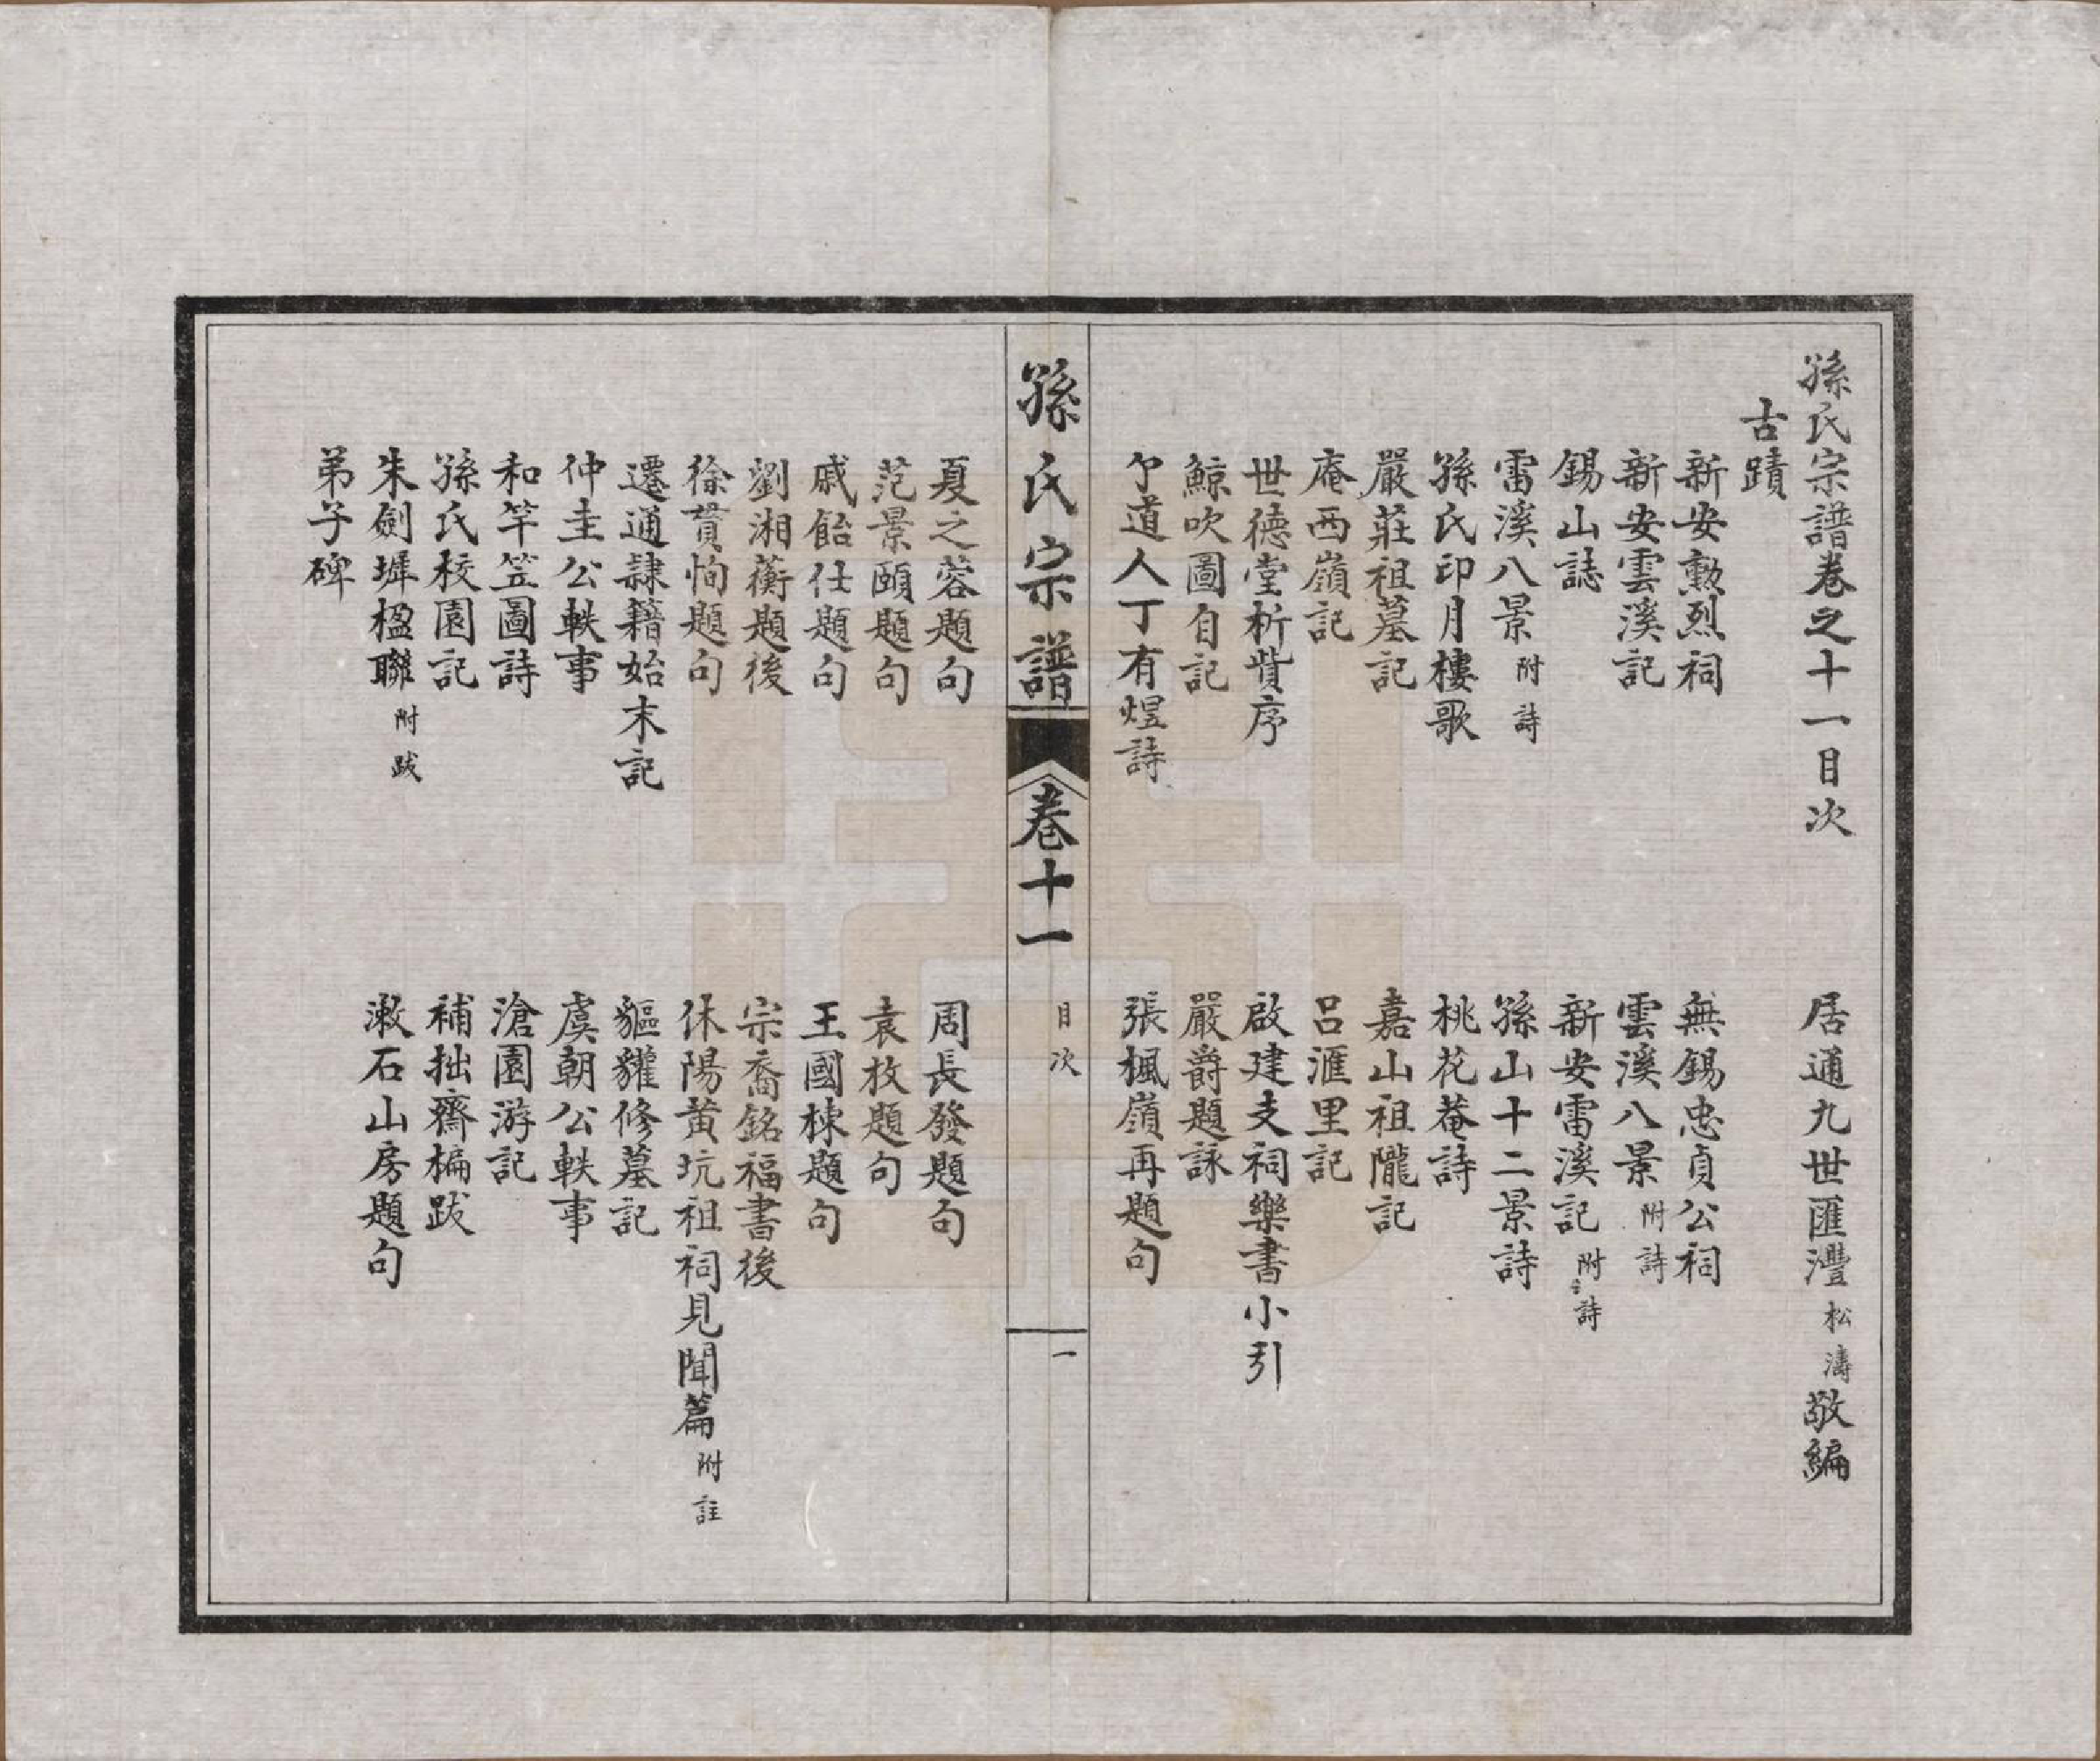 孫氏宗譜卷之十一目次 居通九世匯灃松濤敬編
古蹟
新安勲烈祠 無錫忠貞公祠
新安雲溪記 雲溪八景附詩
錫山誌 新安雷溪記附詩
雷溪八景附詩 孫山十二景詩
孫氏印月樓歌 桃花菴詩
嚴莊祖墓記 嘉山祖隴記
庵西嶺記 呂滙里記
世德堂析貲序 啟建支祠樂書小引
鯨吹圖自記 嚴爵題詠
道人丁有煜詩 張楓嶺再題句
孫氏宗譜 卷十一 目次 一
夏之蓉題句 周長發題句
范景頤題句 袁枚題句
戚飴仕題句 王國棟題句
劉湘蘅題後 宗裔銘福書後
徐貫恂題句 休陽黃坑祖祠見聞篇附註
遷通隸籍始末記 貙貛修墓記
仲圭公軼事 虞朝公軼事
和竿笠圖詩 滄園游記
孫氏校園記 補拙齋楄跋
朱劍墀楹聯附跋 漱石山房題句
弟子碑